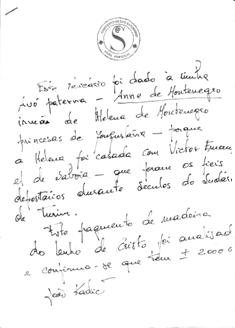 Este relicário foi dado à minha
avó paterna – Anne de Montenegro
irmã de Helena de Montenegro
princesas de – porque
a Helena foi casada com Victor Eman
el de Savoia – que foram os fieis
depositários durante séculos do Sudár
de Turim.
Este fragmento de madeira
do lenho de Cristo foi analisad
e confirma-se que tem ± 2000
João